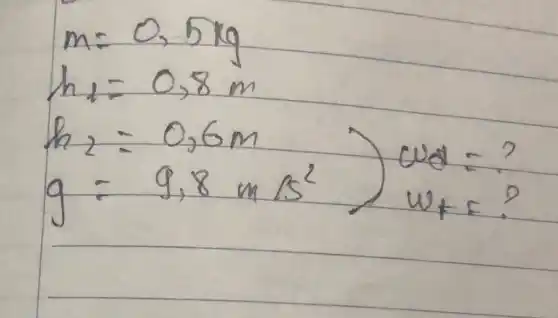 m = 0,5 kg
h₁ = 0,8 m
h₂ = 0,6 m
g = 9,8 m/s²
Wd = ?
Wt = ?